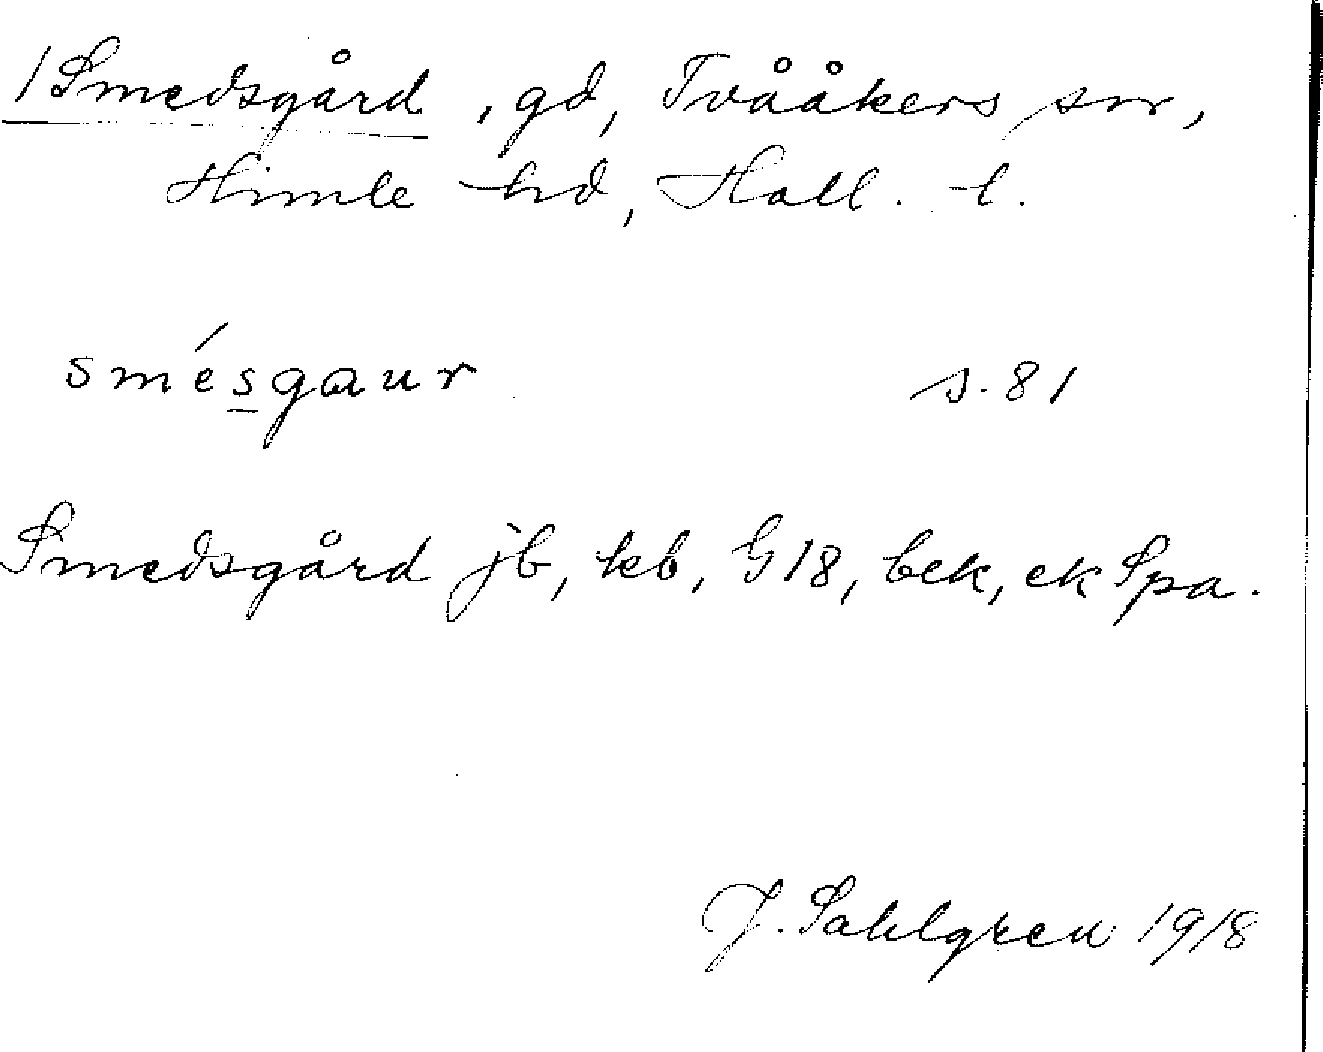 /Smedsgård, gd, Tvååkers sn,
Himle hd, Hall. l.
smésgaur s. 81
Smedsgård jb, kb, G18, bek, ek Spa.
J. Sahlgren 1918